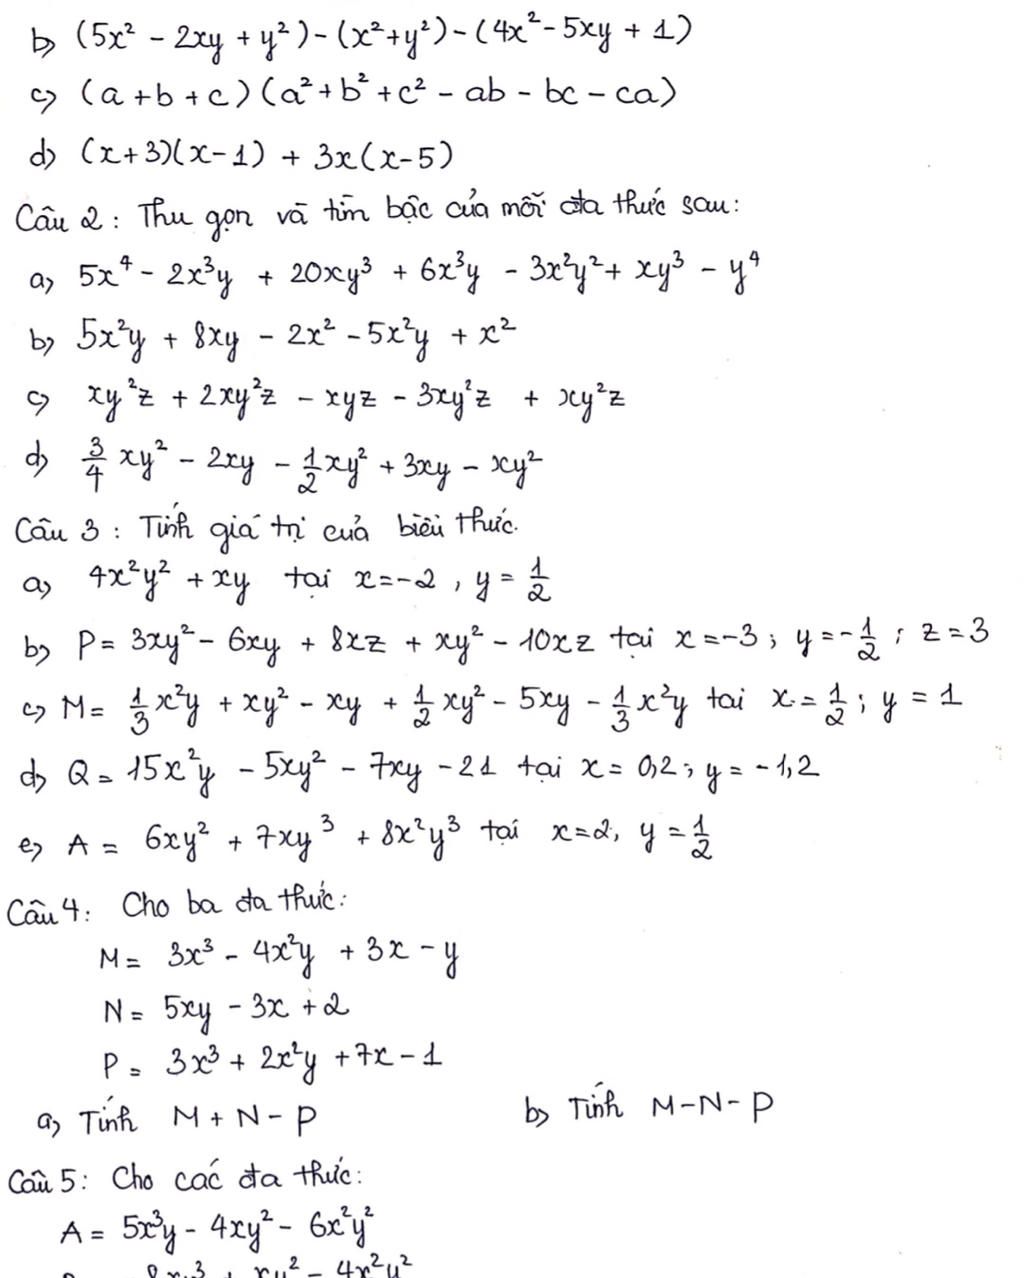 b) (5x² - 2xy + y²) - (x² + y²) - (4x² - 5xy + 1)
c) (a + b + c)(a² + b² + c² - ab - bc - ca)
d) (x + 3)(x - 1) + 3x(x - 5)
Câu 2: Thu gọn và tìm bậc của mỗi đa thức sau:
a) 5x⁴ - 2x³y + 20xy³ + 6x³y - 3x²y² + xy³ - y⁴
b) 5x²y + 8xy - 2x² - 5x²y + x²
c) xy²z + 2xy²z - xyz - 3xy²z + xy²z
d) 3/4 xy² - 2xy - 1/2 xy² + 3xy - xy²
Câu 3: Tính giá trị của biểu thức.
a) 4x²y² + xy tại x = -2, y = 1/2
b) P = 3xy² - 6xy + 8xz + xy² - 10xz tại x = -3; y = -1/2; z = 3
c) M = 1/3 x²y + xy² - xy + 1/2 xy² - 5xy - 1/3 x²y tại x = 1/2; y = 1
d) Q = 15x²y - 5xy² - 7xy - 21 tại x = 0,2; y = -1,2
e) A = 6xy² + 7xy³ + 8x²y³ tại x = 2, y = 1/2
Câu 4: Cho ba đa thức:
M = 3x³ - 4x²y + 3x - y
N = 5xy - 3x + 2
P = 3x³ + 2x²y + 7x - 1
a) Tính M + N - P b) Tính M - N - P
Câu 5: Cho các đa thức:
A = 5x³y - 4xy² - 6x²y²
xy² - 4x²y²